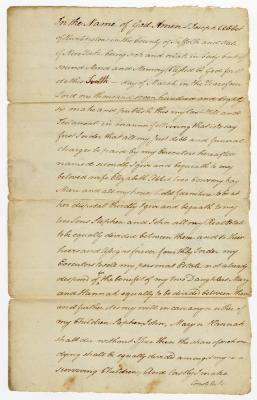 In the Name of God Amen I Joseph
of in the County of Suffolk and State
of New York being and weak in body but of
sound Mind and Memory Blessed be God for it
do this Tenth day of March in the Year of our
Lord one thousand seven hundred and Eighty
six make and publish this my last Will and
Testament in manner following that is to say
first I order that all my just debts and funeral
charges be paid by my Executors hereafter
named secondly I give and bequeath to my
beloved wife Elizabeth
Mare and all my house hold furniture to be at
her disposal thirdly I give and bequeath to my
two Sons Stephen and John all my Real Estate
to be equally divided between them and to their
heirs and assigns forever fourthly I order my
Executors to sell my personal Estate not already
disposed of to the benefit of my two Daughters Mary
and Hannah equally to be divided between them
and further it is my will in case any or either of
my Children Stephen, John, Mary or Hannah
shall die without Issue then the share of such one
dying shall be equally divided amongst my
surviving Children, And lastly I make